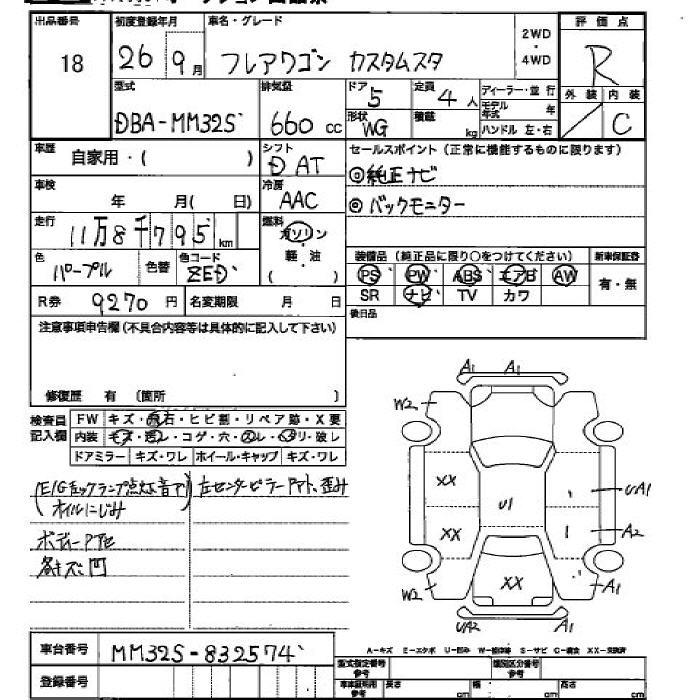 出品番号 初度登録年月 車名・グレード 2WD ・ 4WD 評価点
18 26 9月 フレアワゴン カスタムスタ R
型式 排気量 ドア 5 定員 4人 ディーラー・並行 外装 内装
DBA-MM32S 660cc 形状 WG 積載 kg モデル年式 年 C
ハンドル 左・右
車歴 自家用・( ) シフト D AT セールスポイント(正常に機能するものに限ります)
◎純正ナビ
車検 年 月(日) 冷房 AAC
◎バックモニター
走行 11万8千795km 燃料 ガソリン 軽・油 ( )
色 パープル 色替 色コード ZED
装備品(純正品に限り○をつけてください) 新車保証書
PS PW ABS エアB AW 有・無
R券 9270円 名変期限 月 日 SR ナビ TV カワ
注意事項申告欄(不具合内容等は具体的に記入して下さい) 後日品
修復歴 有 〔箇所 〕
検査員記入欄 FW キズ・飛石・ヒビ割・リペア跡・X要
内装 コゲ・穴・スレ・ 破レ
ドアミラー キズ・ワレ ホイール・キャップ キズ・ワレ
オイルにじみ
ボディー
各キズ凹
A1 A1
W2
XX
U1
UA1
XX
A2
XX
W2 A1
UA2 A1
車台番号 MM32S-832574
A-キズ E-エクボ U-凹み S-サビ C-腐食
登録番号 型式指定番号 参考 類別区分番号 参考
長さ cm 幅 cm 高さ cm